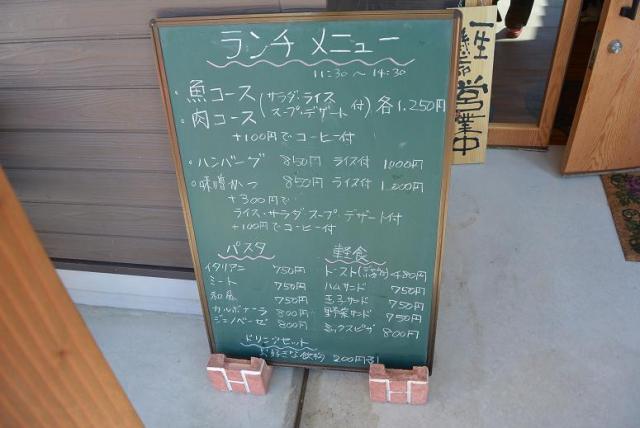 ランチ メニュー
11:30 〜 14:30
・魚コース (サラダ・ライス
・肉コース スープ・デザート 付) 各1,250円
+100円で コーヒー付
・ハンバーグ 850円 ライス付 1000円
・味噌かつ 850円 ライス付 1,000円
+300円で
ライス・サラダ スープ・デザート付
+100円で コーヒー付
パスタ
イタリアン 750円
ミート 750円
和風 750円
カルボナーラ 800円
ジェノベーゼ 800円
軽食
トースト 480円
ハムサンド 750円
玉子サンド 750円
野菜サンド 750円
ミックスピザ 800円
ドリンクセット
お好きな飲物 200円引
一生
懸命
営業中